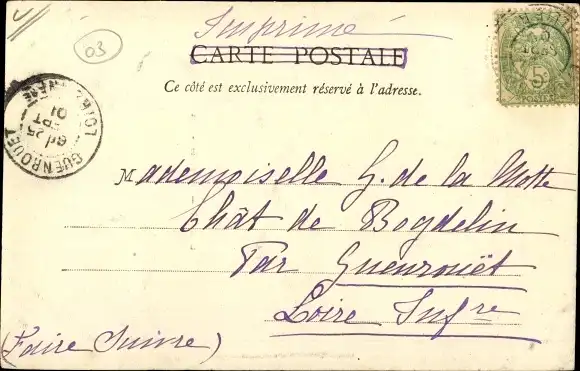 Imprimé
03
CARTE POSTALE
Ce côté est exclusivement réservé à l'adresse.
5c
POSTES
GUENROUET
LOIRE
25
SEPT
01
Mademoiselle G. de la Motte
Chât de Bogdelin
Par Guenrouët
Loire Infre
(Faire Suivre)